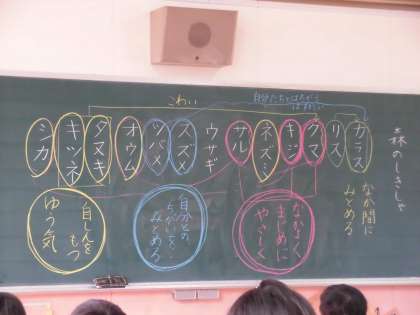 森のしさしゃ
なか間に
みとめる
カラス
リス
クマ
キジ
ネズミ
サル
ウサギ
スズメ
ツバメ
オウム
タヌキ
キツネ
シカ
こわい
なかよく
まじめに
やさしく
自分との
ちがいを
みとめる
自しんを
もつ
ゆう気